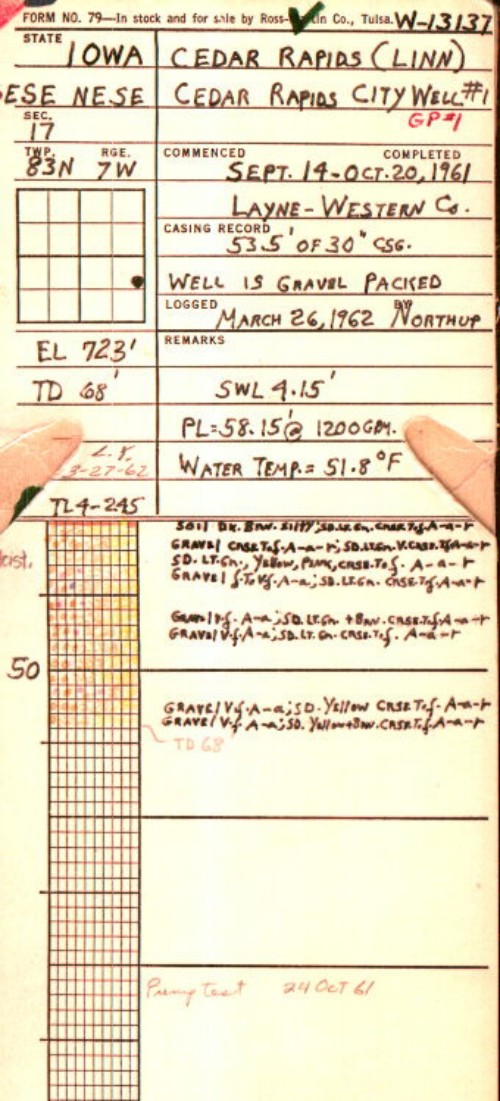 FORM NO. 79—In stock and for sale by Ross-Martin Co., Tulsa. W-13137
STATE
IOWA
CEDAR RAPIDS (LINN)
SESE NESE
CEDAR RAPIDS CITY WELL #1
GP#1
SEC.
17
TWP. RGE.
83N 7W
COMMENCED COMPLETED
SEPT. 14-OCT. 20, 1961
LAYNE-WESTERN Co.
CASING RECORD
53.5' OF 30" CSG.
WELL IS GRAVEL PACKED
LOGGED BY
MARCH 26, 1962 NORTHUP
EL 723'
REMARKS
TD 68'
SWL 4.15'
PL=58.15' @ 1200GPM.
3-27-62
WATER TEMP.= 51.8°F
TL4-245
SOIL DK. BRN. SILTY; SD. LT. GN. CRSE T.f. A-a-r
GRAVEL CRSE T.f. A-a-r; SD. LT. GN. V. CRSE. T.f. A-a-r
SD. LT. GN., Yellow, PINK, CRSE. T.f. A-a-r
GRAVEL f. To V.f. A-a; SD. LT. GN. CRSE. T.f. A-a-r
GRAVEL V.f. A-a; SD. LT. GN. + BRN. CRSE T.f. A-a-r
GRAVEL V.f. A-a; SD. LT. GN. CRSE. T.f. A-a-r
50
GRAVEL V.f. A-a; SD. Yellow CRSE T.f. A-a-r
GRAVEL V.f. A-a; SD. Yellow + BRN. CRSE T.f. A-a-r
TD 68'
Pump test 24 OCT 61